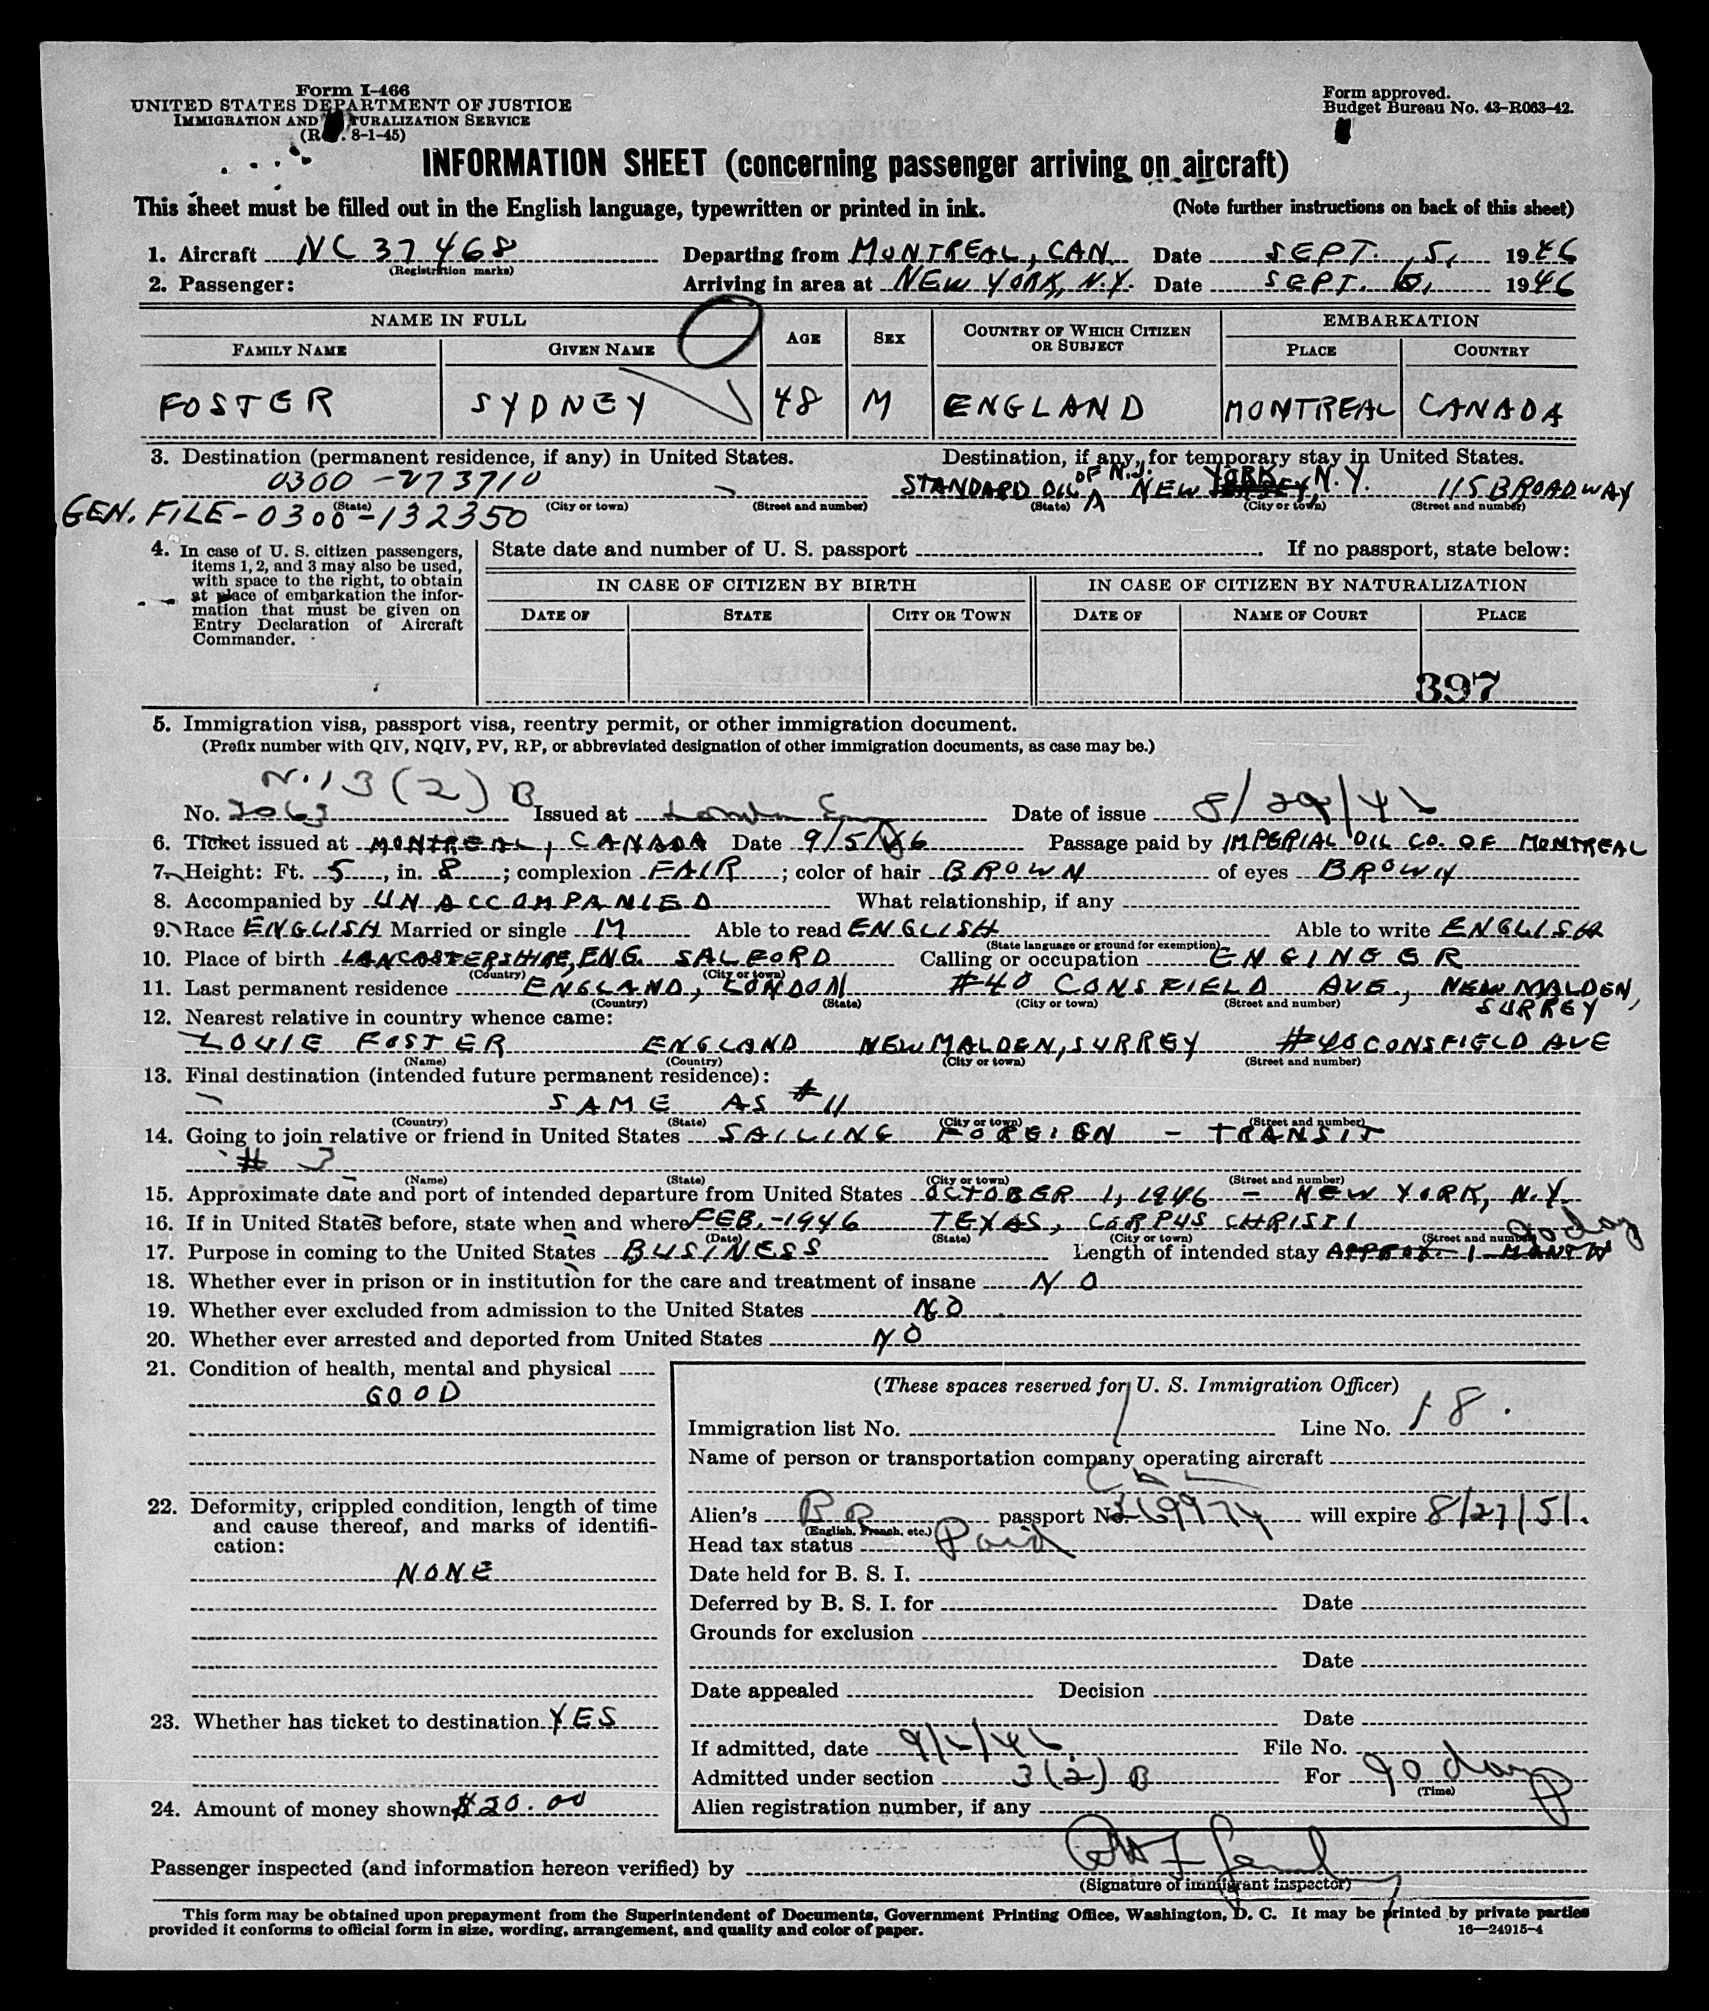 Form I-466
UNITED STATES DEPARTMENT OF JUSTICE
IMMIGRATION AND NATURALIZATION SERVICE
(Rev. 8-1-45)
Form approved.
Budget Bureau No. 43-R063-42.
INFORMATION SHEET (concerning passenger arriving on aircraft)
This sheet must be filled out in the English language, typewritten or printed in ink. (Note further instructions on back of this sheet)
1. Aircraft NC 37468 Departing from MONTREAL, CAN. Date SEPT. 5, 1946
(Registration marks)
2. Passenger: Arriving in area at NEW YORK, N.Y. Date SEPT. 6, 1946
NAME IN FULL AGE SEX COUNTRY OF WHICH CITIZEN OR SUBJECT EMBARKATION
FAMILY NAME GIVEN NAME PLACE COUNTRY
FOSTER SYDNEY 48 M ENGLAND MONTREAL CANADA
3. Destination (permanent residence, if any) in United States. Destination, if any, for temporary stay in United States.
0300-273710 STANDARD OIL OF N.J. NEW YORK, N.Y. 115 BROADWAY
(State) (City or town) (Street and number) (State) (City or town) (Street and number)
GEN. FILE-0300-132350
4. In case of U. S. citizen passengers, items 1, 2, and 3 may also be used, with space to the right, to obtain at place of embarkation the information that must be given on Entry Declaration of Aircraft Commander.
State date and number of U. S. passport If no passport, state below:
IN CASE OF CITIZEN BY BIRTH IN CASE OF CITIZEN BY NATURALIZATION
DATE OF STATE CITY OR TOWN DATE OF NAME OF COURT PLACE
397
5. Immigration visa, passport visa, reentry permit, or other immigration document.
(Prefix number with QIV, NQIV, PV, RP, or abbreviated designation of other immigration documents, as case may be.)
3(2)B
No. 2063 Issued at London Eng Date of issue 8/29/46
6. Ticket issued at MONTREAL, CANADA Date 9/5/46 Passage paid by IMPERIAL OIL CO. OF MONTREAL
7. Height: Ft. 5, in. 8; complexion FAIR; color of hair BROWN of eyes BROWN
8. Accompanied by UNACCOMPANIED What relationship, if any
9. Race ENGLISH Married or single M Able to read ENGLISH Able to write ENGLISH
(State language or ground for exemption)
10. Place of birth LANCASTERSHIRE, ENG. SALFORD Calling or occupation ENGINEER
(Country) (City or town)
11. Last permanent residence ENGLAND, LONDON #40 CONSFIELD AVE., NEW MALDEN, SURREY
(Country) (State) (City or town) (Street and number)
12. Nearest relative in country whence came:
LOUIE FOSTER ENGLAND NEW MALDEN, SURREY #40 CONSFIELD AVE
(Name) (Country) (City or town) (Street and number)
13. Final destination (intended future permanent residence):
SAME AS #11
(Country) (State) (City or town) (Street and number)
14. Going to join relative or friend in United States SAILING FOREIGN - TRANSIT
# 3
(Name) (State) (City or town) (Street and number)
15. Approximate date and port of intended departure from United States OCTOBER 1, 1946 - NEW YORK, N.Y.
16. If in United States before, state when and where FEB.-1946 TEXAS, CORPUS CHRISTI
(Date) (State) (City or town) (Street and number)
90 day
17. Purpose in coming to the United States BUSINESS Length of intended stay APPROX. 1 MONTH
18. Whether ever in prison or in institution for the care and treatment of insane NO
19. Whether ever excluded from admission to the United States NO
20. Whether ever arrested and deported from United States NO
21. Condition of health, mental and physical
GOOD
22. Deformity, crippled condition, length of time and cause thereof, and marks of identification:
NONE
23. Whether has ticket to destination YES
24. Amount of money shown $20.00
(These spaces reserved for U. S. Immigration Officer)
Immigration list No. 1 Line No. 18.
Name of person or transportation company operating aircraft
Alien's passport No. will expire 8/27/51.
(English, French, etc.)
Head tax status Paid
Date held for B. S. I.
Deferred by B. S. I. for Date
Grounds for exclusion
Date
Date appealed Decision
Date
If admitted, date 9/6/46 File No.
Admitted under section 3(2)B For 90 days
(Time)
Alien registration number, if any
Passenger inspected (and information hereon verified) by
(Signature of immigrant inspector)
This form may be obtained upon prepayment from the Superintendent of Documents, Government Printing Office, Washington, D. C. It may be printed by private parties
provided it conforms to official form in size, wording, arrangement, and quality and color of paper. 16—24915-4